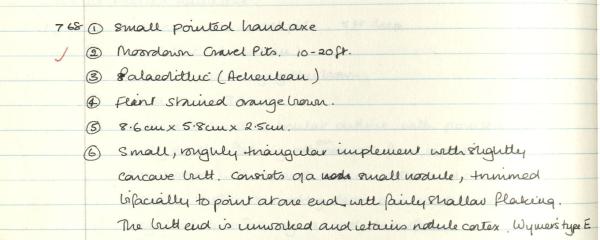 768 ① Small pointed handaxe
② Moordown Gravel Pits. 10-20ft.
③ Palaeolithic (Acheulean)
④ Flint stained orangebrown.
⑤ 8.6cm x 5.8cm x 2.5cm.
⑥ Small, roughly triangular implement with slightly
concave butt. Consists of a small nodule, trimmed
bifacially to point at one end with fairly shallow flaking.
The butt end is unworked and retains nodule cortex. Wymer's type E